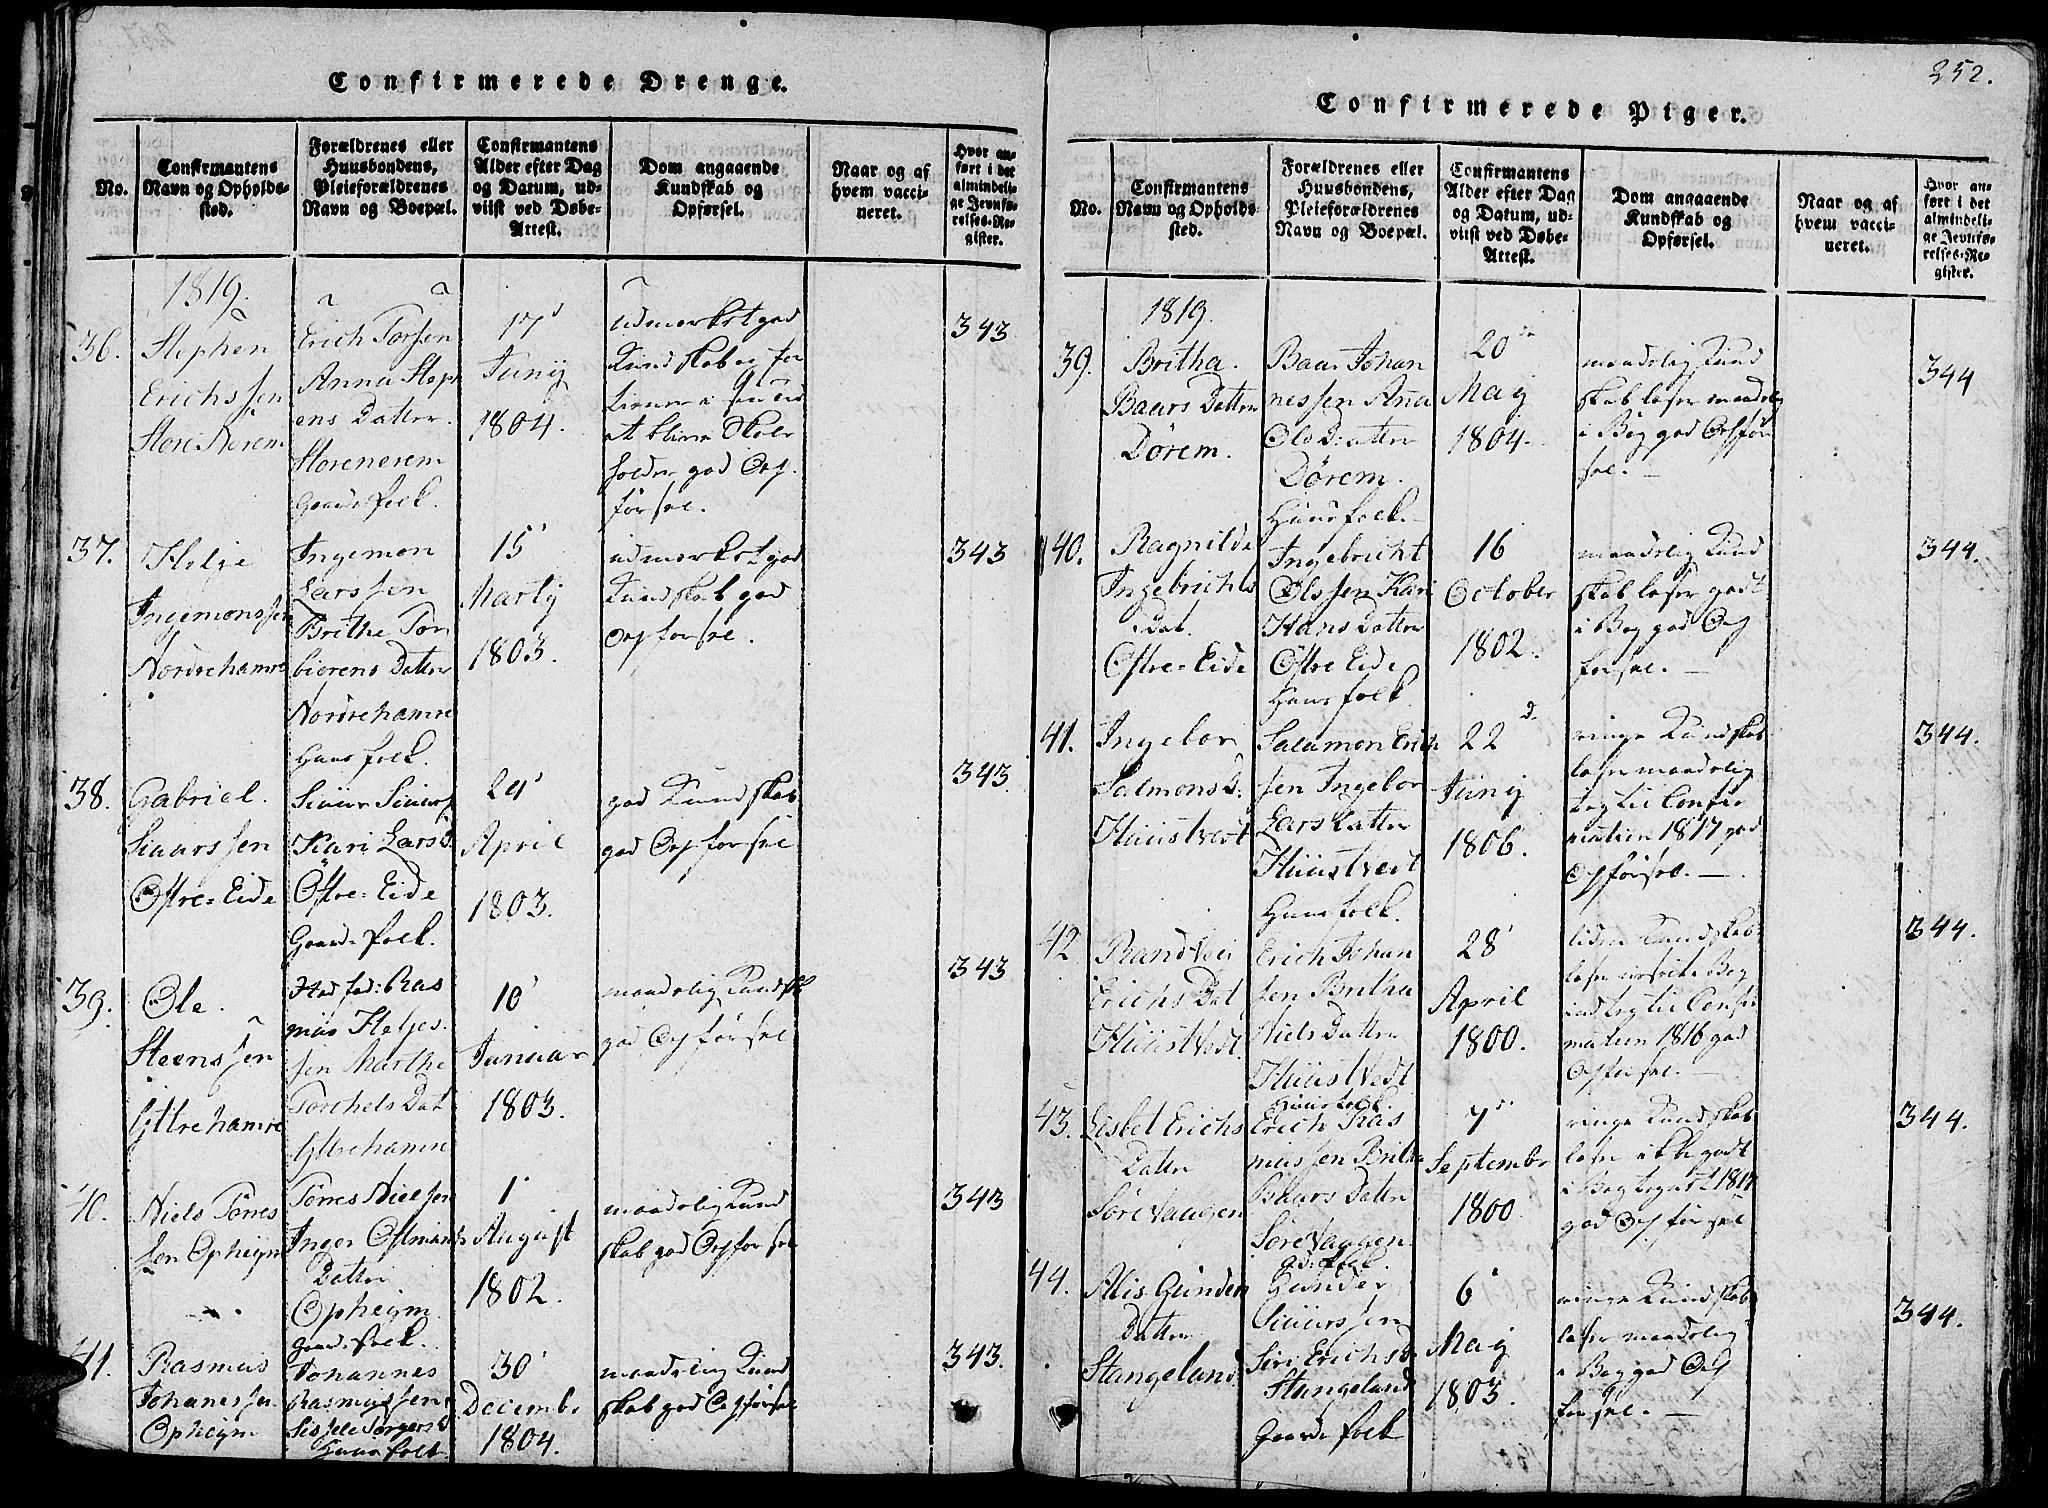 Confirmerede Drenge.
No.
Confirmantens
Navn og Opholds-
sted.
Forældrenes eller
Huusbondens,
Pleieforældrenes
Navn og Boepæl.
Confirmantens
Alder efter Dag
og Datum, ud-
viist ved Døbe-
Attest.
Dom angaaende
Kundskab og
Opførsel.
Naar og af
hvem vacci-
neret.
Hvor an-
ført i det
almindeli-
ge Jevnfø-
relses-Re-
gister.
1819.
36.
Stephen
Erichssen
Store Nerem
Erich Torsen
Anna Steph
ens Datter
Storenerem
Gaardsfolk.
17
Junij
1804.
udmerket god
Kundskab og
at blive Skole
holder god Op
førsel.
343
37.
Helje
Ingemonssen
Nordrehamre
Ingemon
Larssen
Brithe Tor
biørens Datter
Nordrehamre
Huusfolk.
15
Martij
1803.
udmerket god
Kundskab god
Opførsel.
343
38.
Gabriel
Siuurssen
Østre-Eide
Siuur Siuurs
Kari Lars D.
Østre-Eide
Gaardsfolk.
24
April
1803.
god Kundskab
god Opførsel
343
39.
Ole
Steenssen
Yttrehamre
Ras
mus Heljes
sen Marthe
Torchels Dat
Yttrehamre
10
Januar
1803.
maadelig Kundsk
god Opførsel
343
40.
Niels Tørres
sen Opheijm
Tørres Nielsen
Inger Ostmunds
Datter
Opheijm
Gaardsfolk.
1
August
1802.
maadelig Kund
skab god Opførsel
343
41.
Rasmus
Johanessen
Opheijm
Johannes
Rasmussen
Sissele Torgers D
Huusfolk.
30
Decembr
1804.
maadelig Kund
skab god Opførsel
343.
252.
Confirmerede Piger.
No.
Confirmantens
Navn og Opholds-
sted.
Forældrenes eller
Huusbondens,
Pleieforældrenes
Navn og Boepæl.
Confirmantens
Alder efter Dag
og Datum, ud-
viist ved Døbe-
Attest.
Dom angaaende
Kundskab og
Opførsel.
Naar og af
hvem vacci-
neret.
Hvor an-
ført i det
almindeli-
ge Jevnfø-
relses-Re-
gister.
1819.
39.
Britha
Baars Datter
Dørem.
Baar Johan
nessen Anna
Ols Datter
Dørem.
Huusfolk.
20de
Maij
1804.
maadelig Kund
skab læser maadelig
i Bog god Opfør
sel.
344
40.
Ragnilde
Ingebrichts
Dat.
Østre-Eide
Ingebricht
Olssen Kari
Hans Datter
Østre Eide
Huusfolk
16
October
1802.
maadelig Kund
skab læser godt
i Bog god Op
førsel.
344.
41.
Ingebor
Salmons D:
Huustvedt
Salamon Erich
sen Ingebor
Lars Datter
Huustvedt
Huusfolk.
22d.
Junij
1806.
ringe Kundskab
læser maadelig
tegt til Confir
mation 1817 god
Opførsel.
344.
42
Randvei
Erichs Dat
Huustvedt.
Erich Johan
sen Britha
Niels Datter
Huustvedt
Huusfolk.
28
April
1800.
liden Kundskab
ind tegt til Confir
mation 1816 god
Opførsel.
344.
43.
Lisbet Erichs
Datter
Sørevaagen
Erich Ras
mussen Britha
Baars Datter
Sørevaagen
Gds.folk.
7
Septembr
1800.
ringe Kundskab
læser ikke godt
i Bog tegnet 1817
god Opførsel
344.
44.
Alis Gunders
Datter
Stangeland
Gunder
Siuurssen
Siri Erichsd
Stangeland
Gaardsfolk
6
Maij
1803.
ringe Kundskab
læser maadelig
i Bog god Op
førsel.
344.